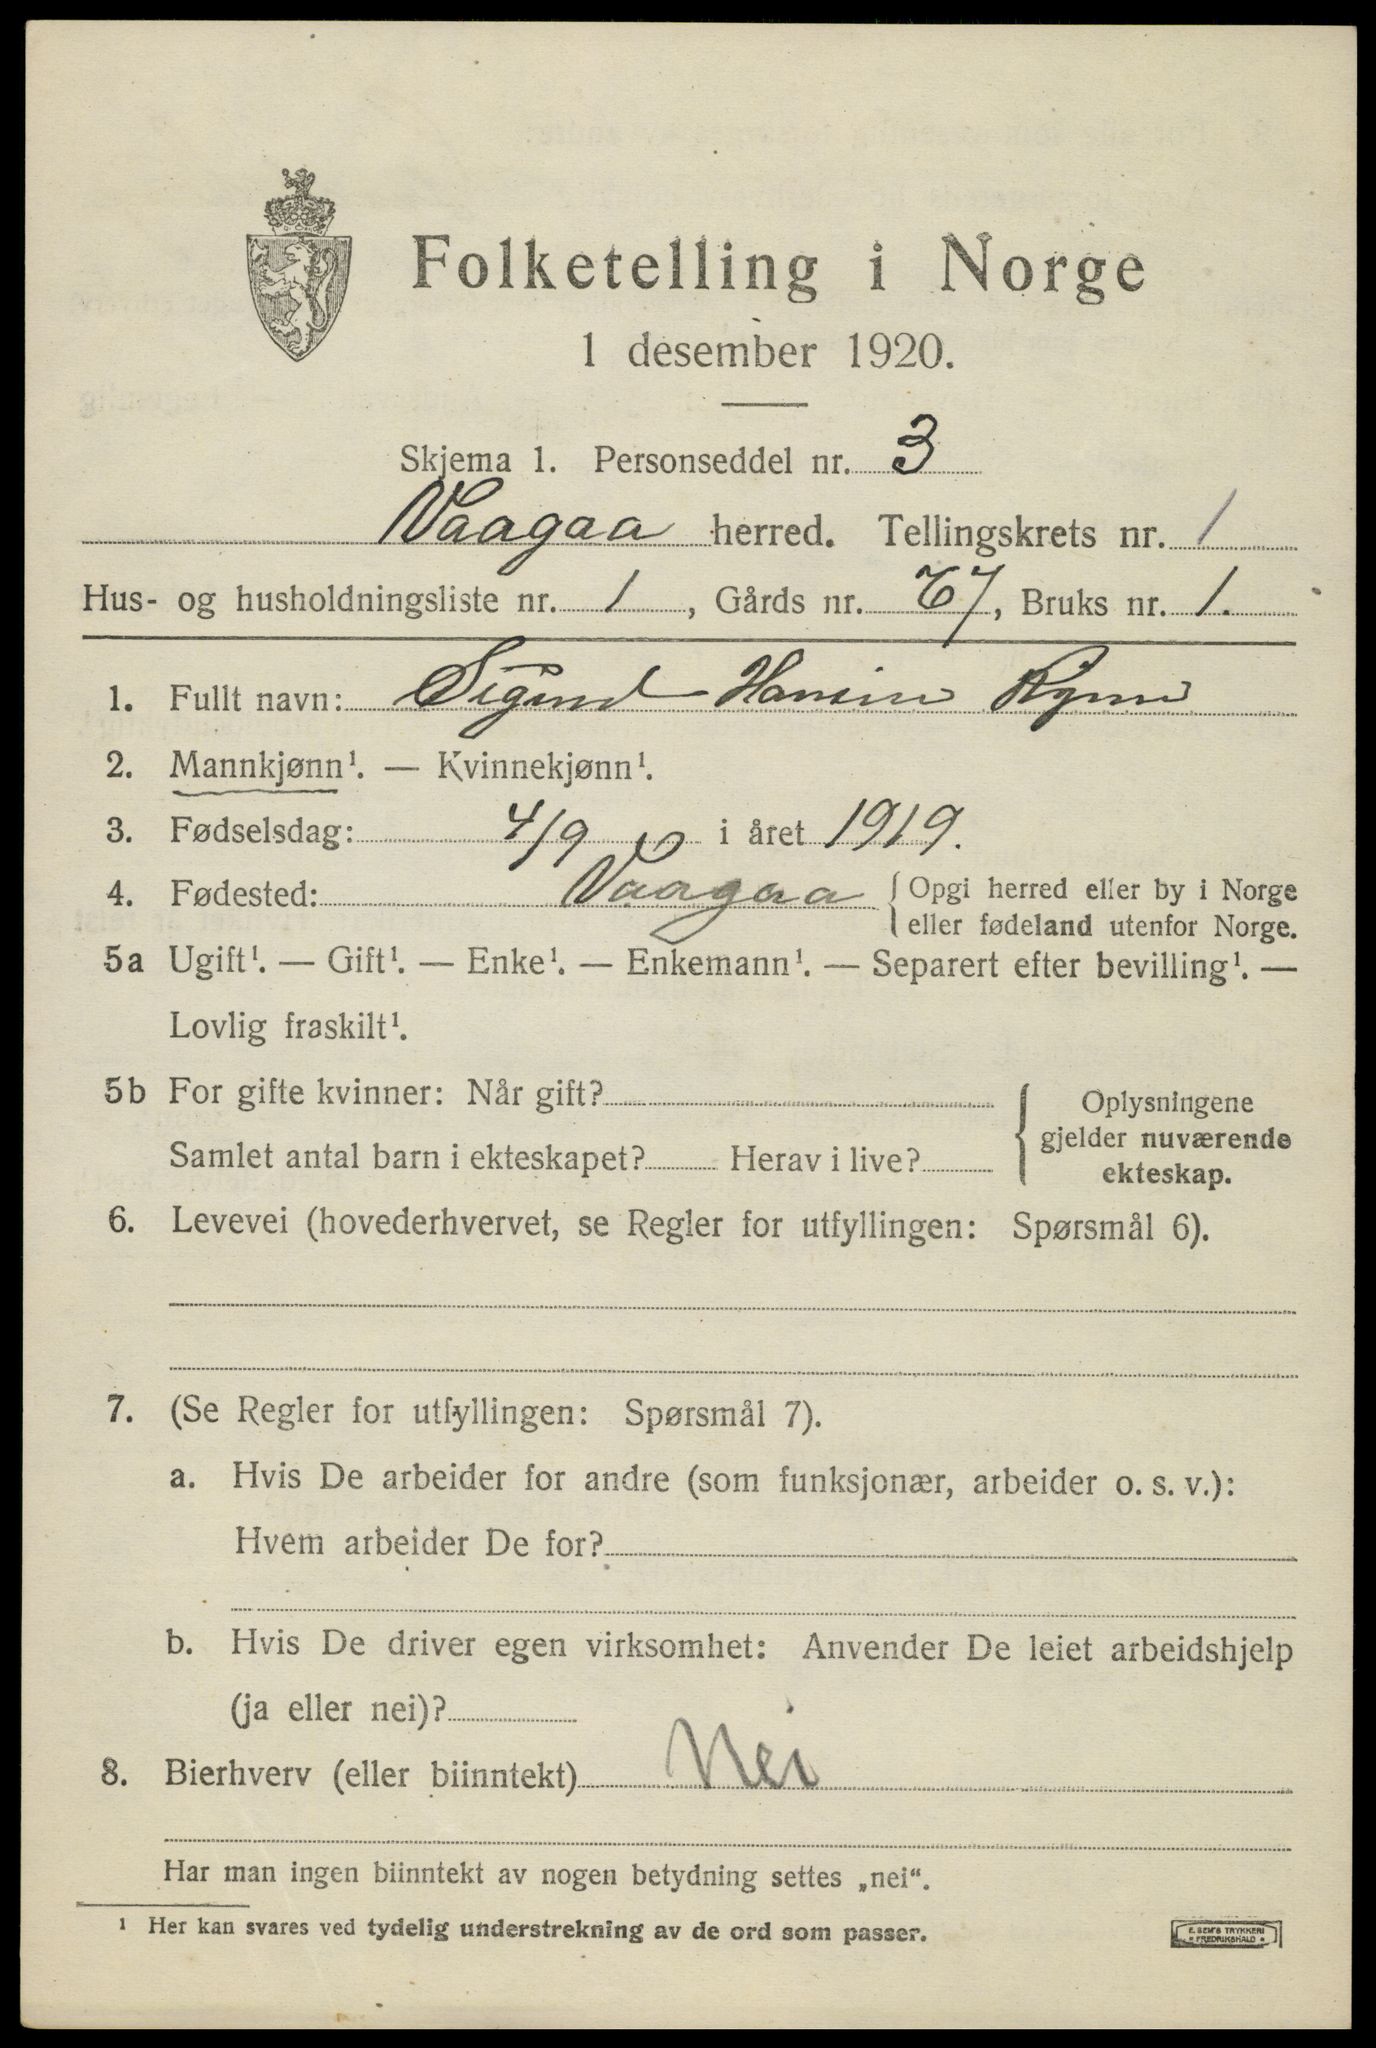 Folketelling i Norge
1 desember 1920.
Skjema 1. Personseddel nr. 3
Vaagaa herred. Tellingskrets nr. 1
Hus- og husholdningsliste nr. 1, Gårds nr. 67, Bruks nr. 1.
1. Fullt navn:
2. Mannkjønn¹. — Kvinnekjønn¹.
3. Fødselsdag: 4/9 i året 1919.
4. Fødested: Vaagaa { Opgi herred eller by i Norge
eller fødeland utenfor Norge.
5a Ugift¹. — Gift¹. — Enke¹. — Enkemann¹. — Separert efter bevilling¹. —
Lovlig fraskilt¹.
5b For gifte kvinner: Når gift?
Samlet antal barn i ekteskapet? Herav i live?
Oplysningene
gjelder nuværende
ekteskap.
6. Levevei (hovederhvervet, se Regler for utfyllingen: Spørsmål 6).
7. (Se Regler for utfyllingen: Spørsmål 7).
a. Hvis De arbeider for andre (som funksjonær, arbeider o. s. v.):
Hvem arbeider De for?
b. Hvis De driver egen virksomhet: Anvender De leiet arbeidshjelp
(ja eller nei)?
8. Bierhverv (eller biinntekt) Nei
Har man ingen biinntekt av nogen betydning settes „nei“.
¹ Her kan svares ved tydelig understrekning av de ord som passer.
E. SEM'S TRYKKERI
FREDRIKSHALD